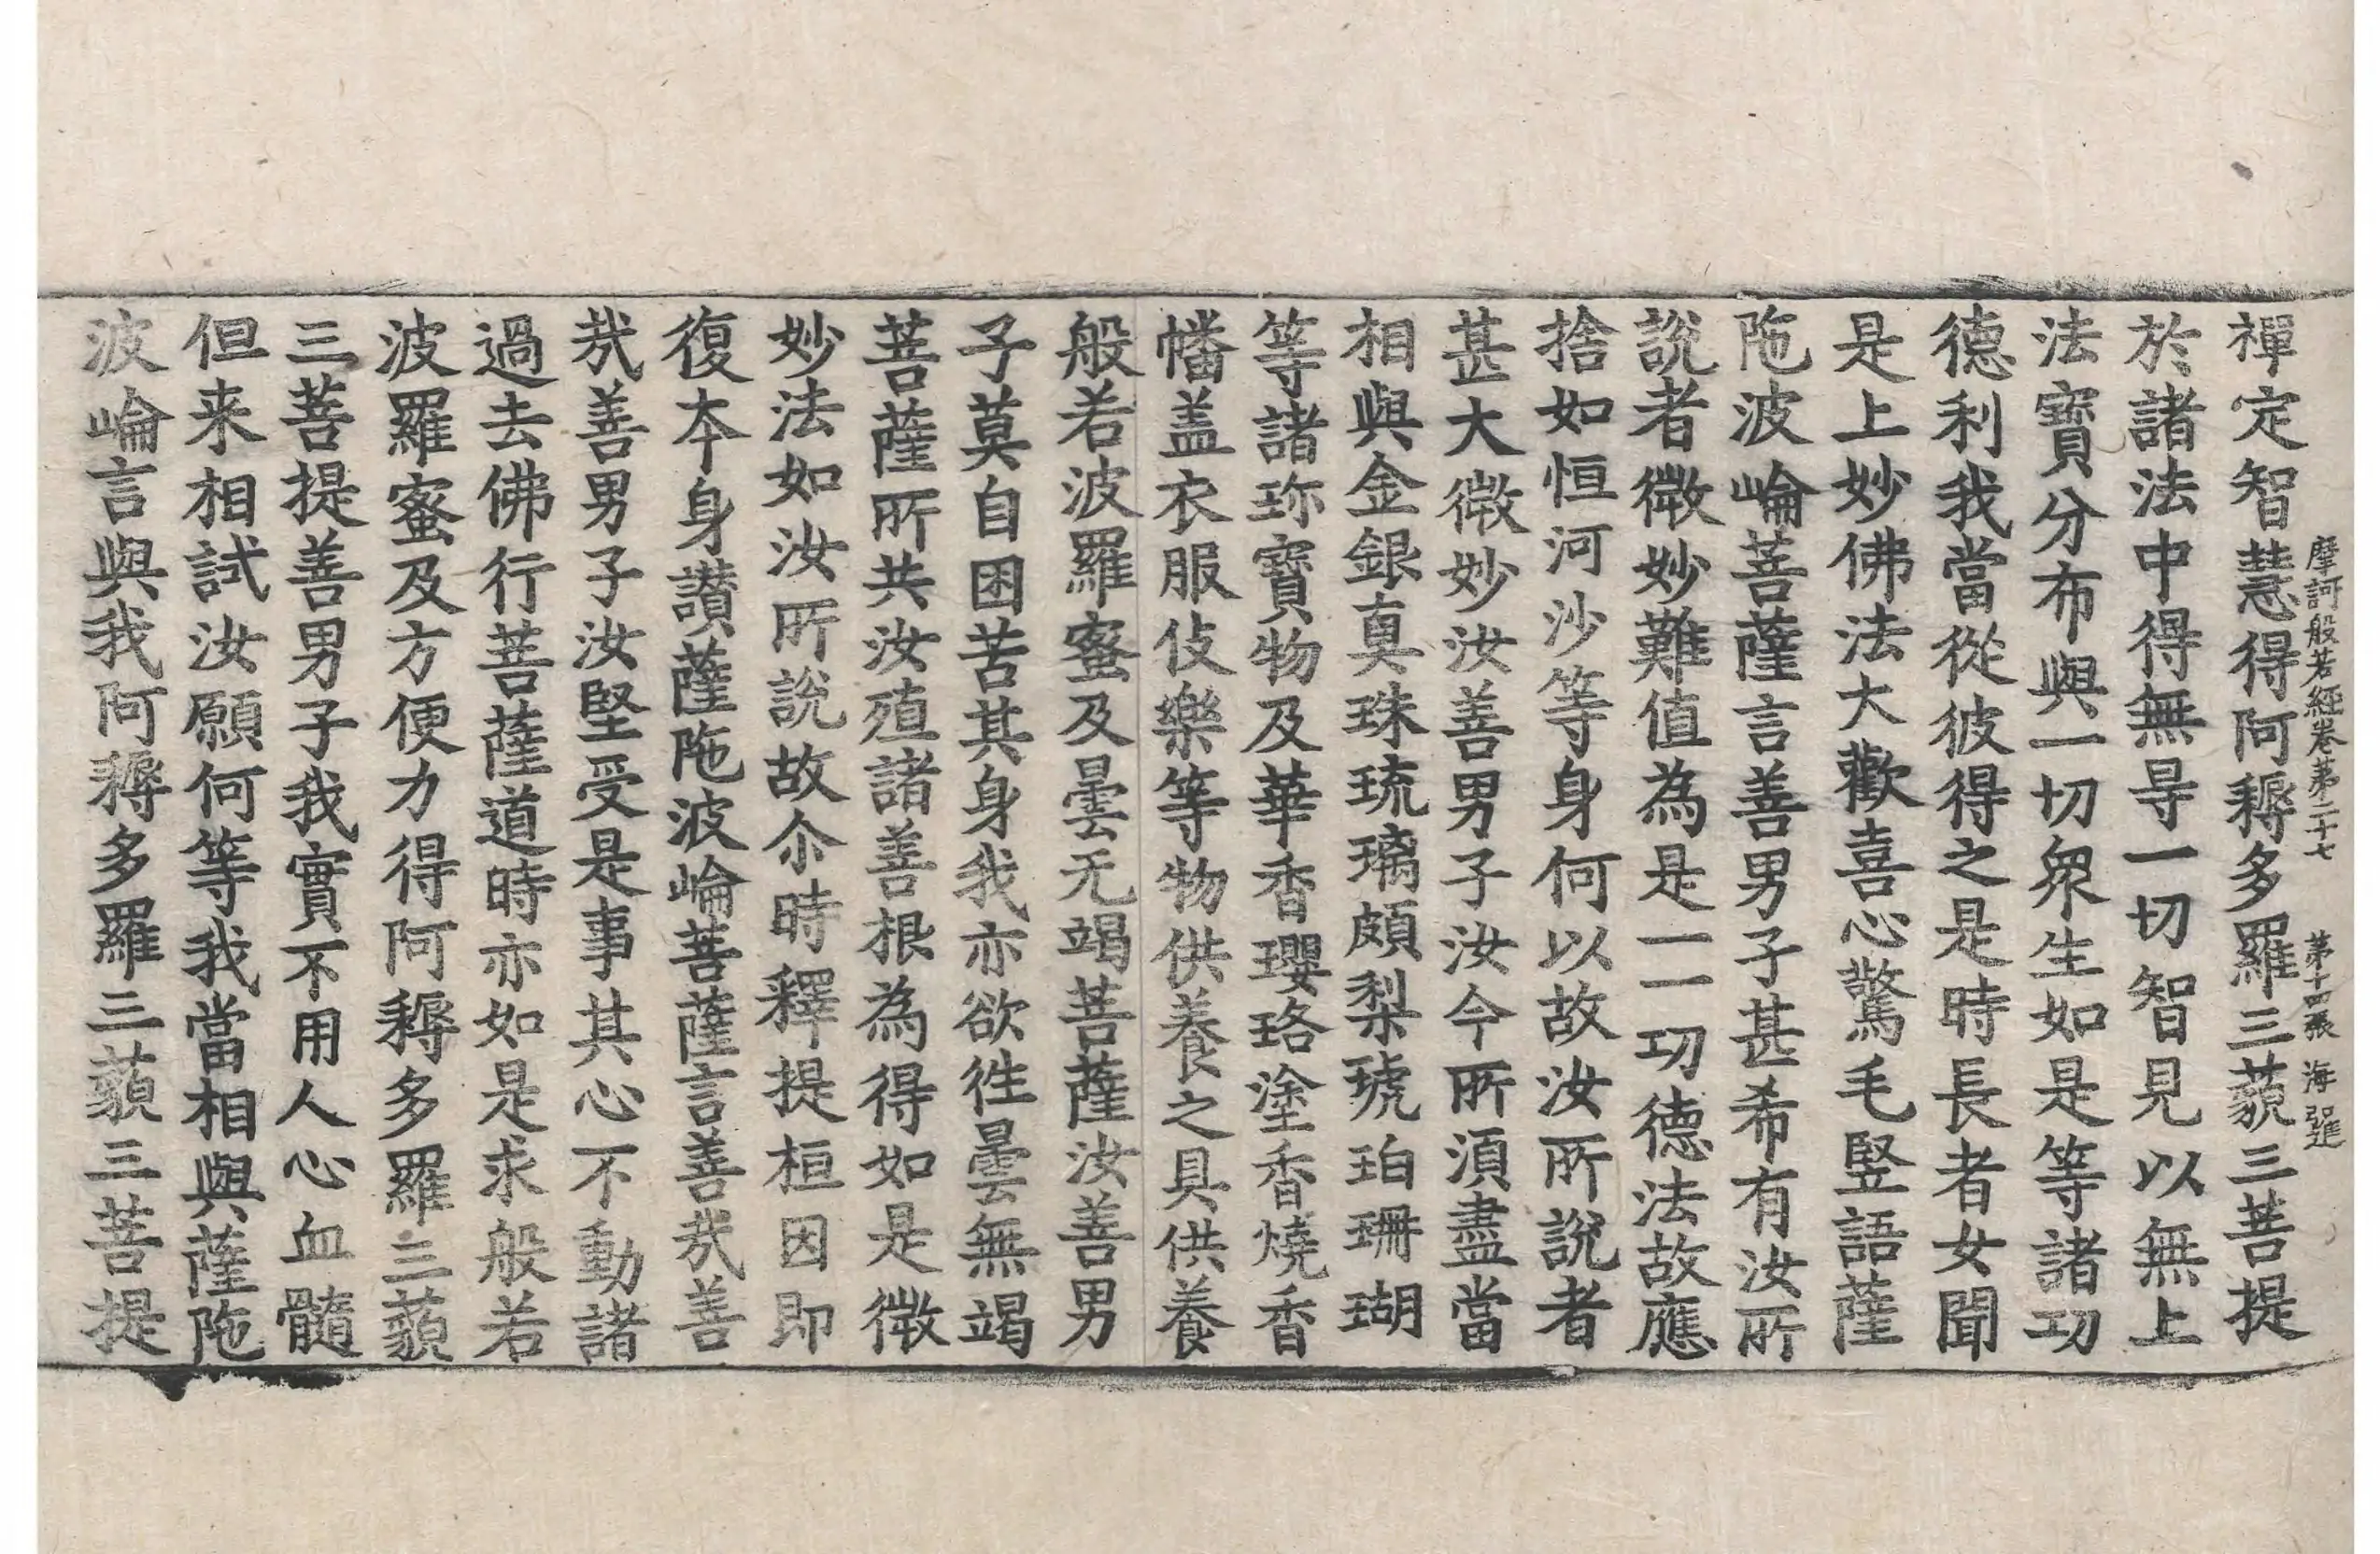 摩訶般若經卷苐二十七 苐十四張 海進
禪定智慧得阿耨多羅三藐三菩提
於諸法中得無㝵一切智見以無上
法寶分布與一切衆生如是等諸功
德利我當從彼得之是時長者女聞
是上妙佛法大歡喜心驚毛竪語薩
陁波崘菩薩言善男子甚希有汝所
說者微妙難值為是一一功德法故應
捨如恒河沙等身何以故汝所說者
甚大微妙汝善男子汝今所須盡當
相與金銀真珠琉璃頗梨琥珀珊瑚
等諸珎寶物及華香瓔珞塗香燒香
幡盖衣服伎樂等物供養之具供養
般若波羅蜜及曇无竭菩薩汝善男
子莫自困苦其身我亦欲徃曇無竭
菩薩所共汝殖諸善根為得如是微
妙法如汝所說故尒時釋提桓因即
復本身讃薩陁波崘菩薩言善㢤善
㢤善男子汝堅受是事其心不動諸
過去佛行菩薩道時亦如是求般若
波羅蜜及方便力得阿耨多羅三藐
三菩提善男子我實不用人心血髓
但来相試汝願何等我當相與薩陁
波崘言與我阿耨多羅三藐三菩提